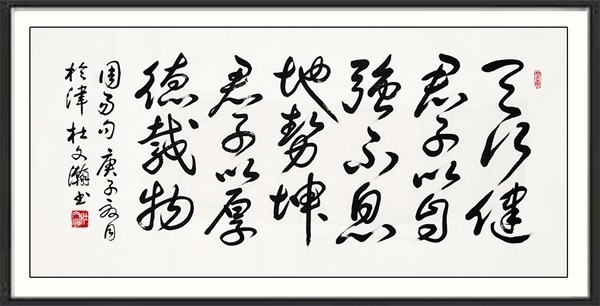 天行健
君子以自
強不息
地勢坤
君子以厚
德載物
周易句 庚子 月
於津 杜文瀚书